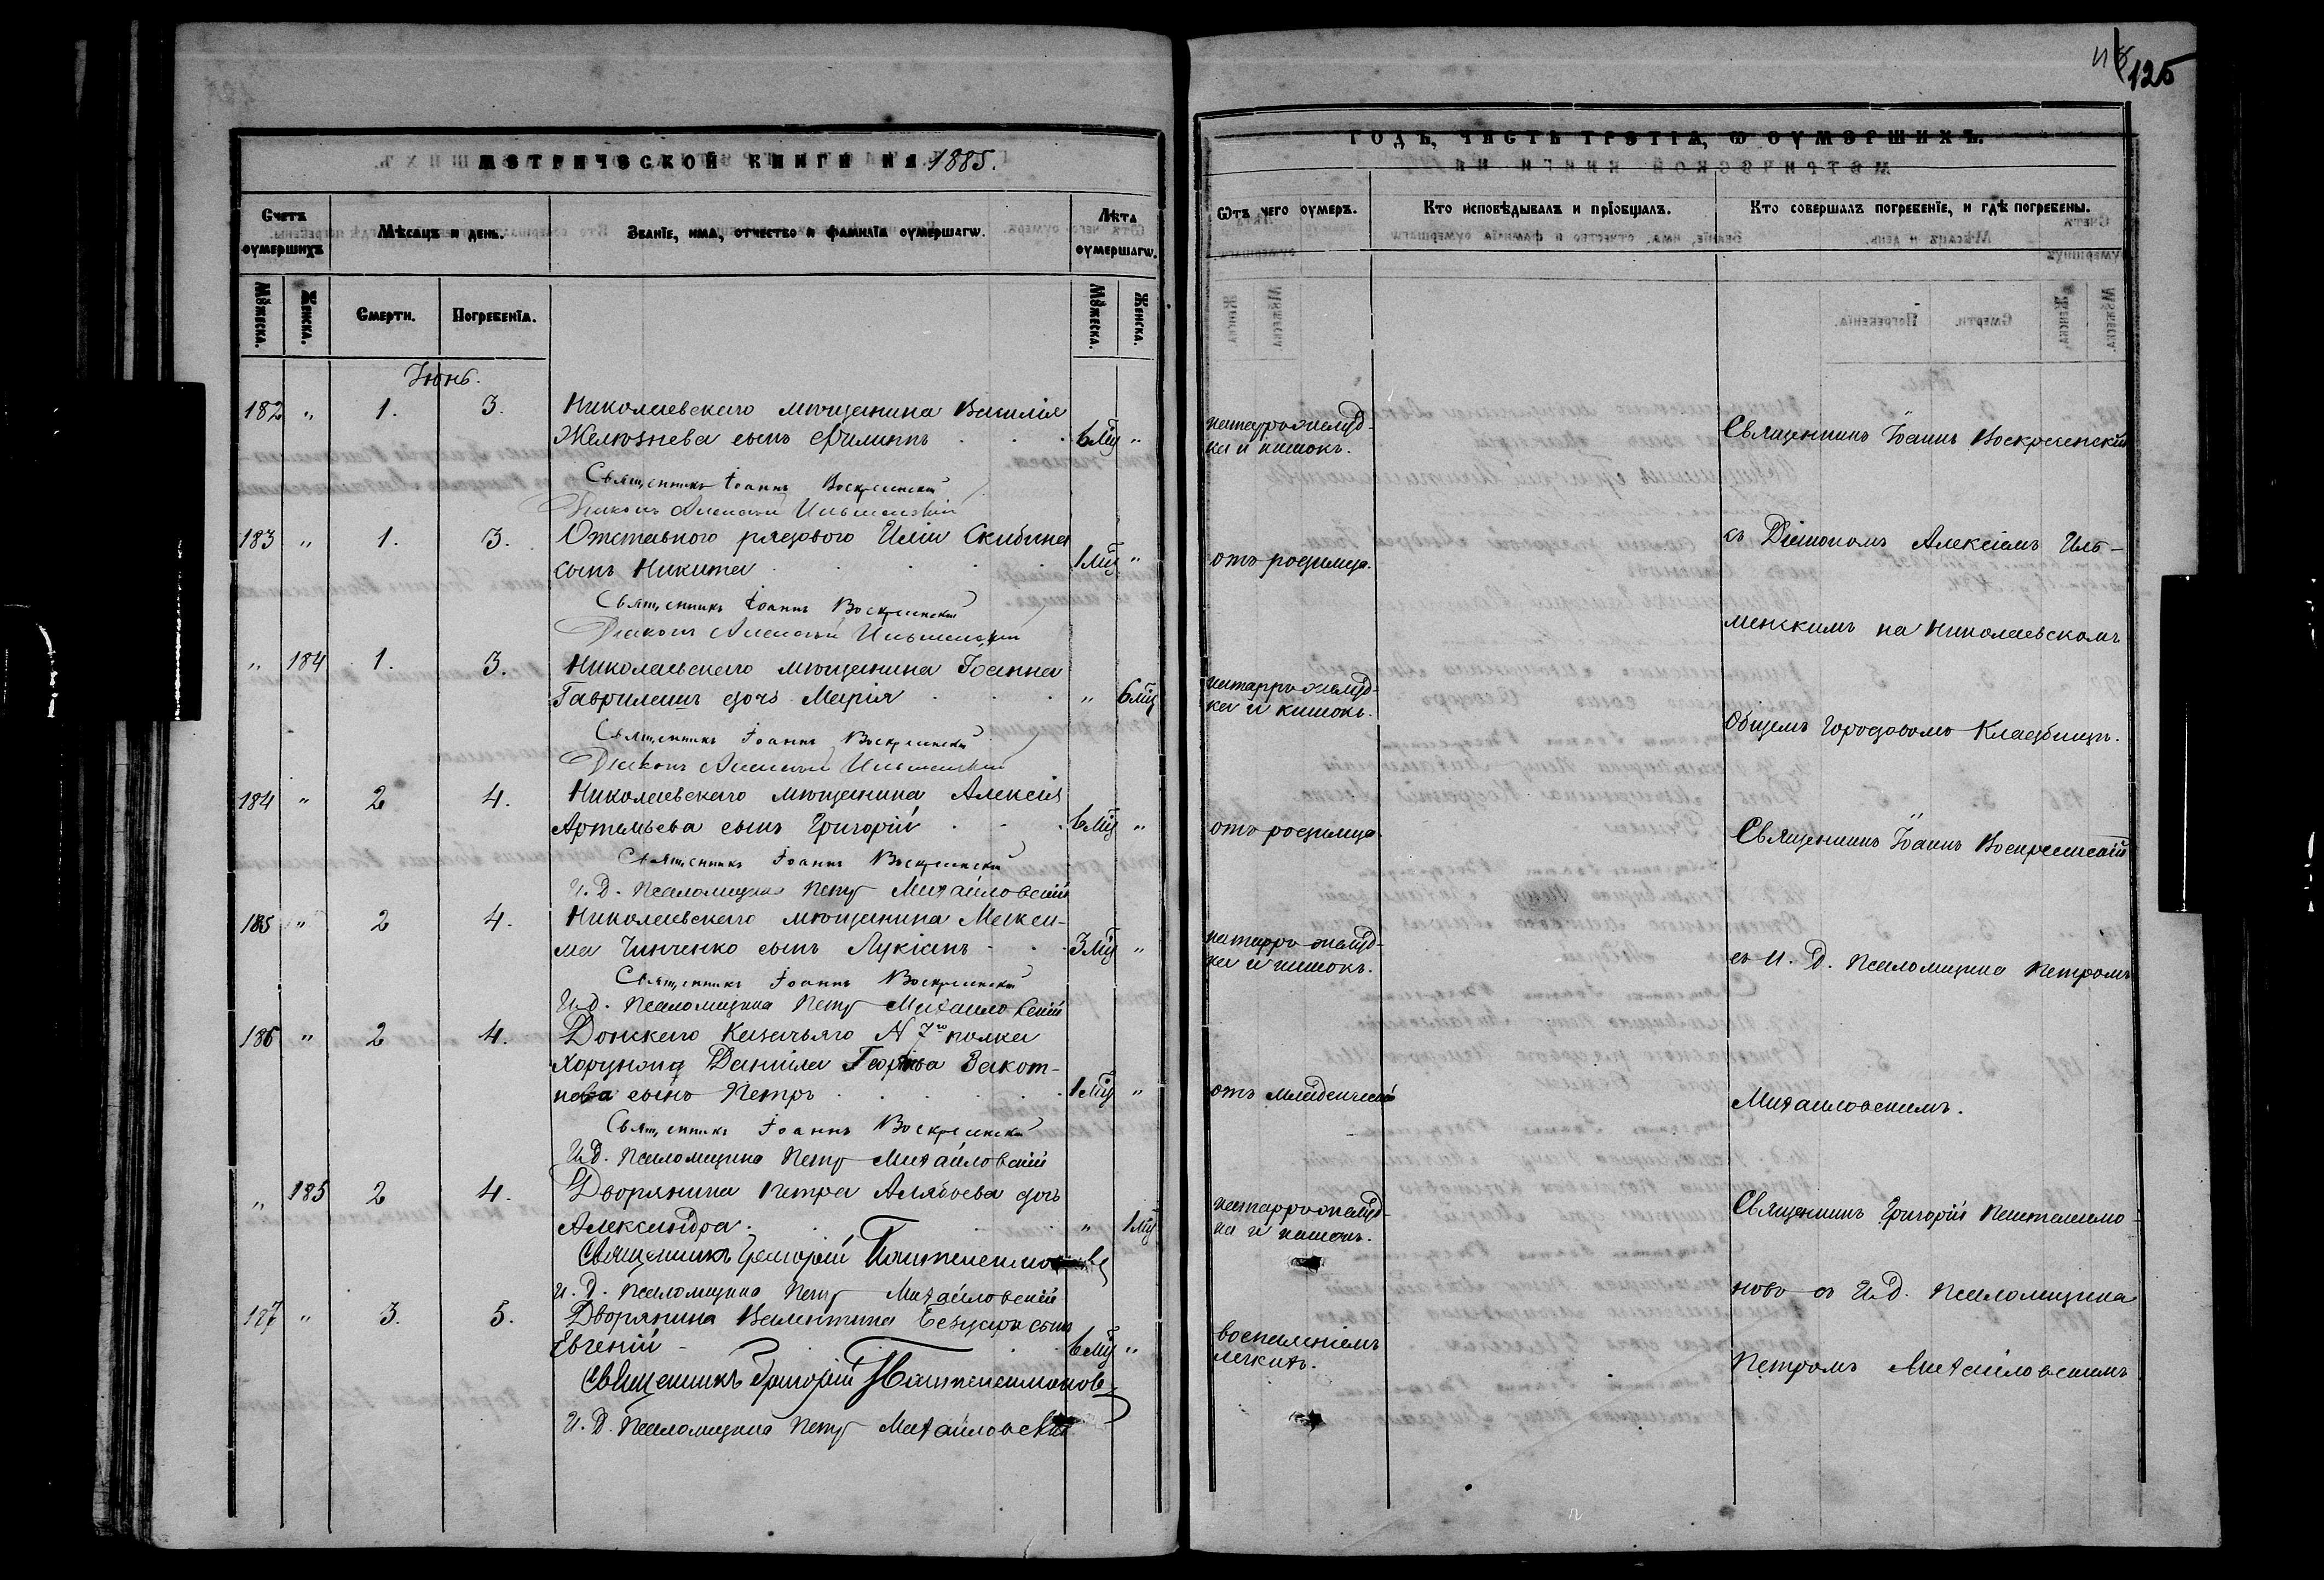 МЕТРИЧЕСКОЙ КНИГИ НА 1885.
Счетъ оумершихъ
Мѣсяцъ и день.
Званїе, имя, отчество и фамилїя оумершагѡ.
Лѣта оумершагѡ.
Мꙋжеска.
Женска.
Смерти.
Погребенїя.
Мꙋжеска.
Женска.
Іюнь.
182 " 1. 3. Николаевскаго мѣщанина Василія
Желѣзнева сынъ Филиппъ 6 мц "
Священникъ Іоаннъ Воскресенскій
Діаконъ Алексій Ильменскій
183 " 1. 3. Отставного рядового Иліи Скибина
сынъ Никита 1 мц "
Священникъ Іоаннъ Воскресенскій
Діаконъ Алексій Ильменскій
" 184 1. 3. Николаевскаго мѣщанина Іоанна
Гаврилешъ дочь Марія " 6 мц
Священникъ Іоаннъ Воскресенскій
Діаконъ Алексій Ильменскій
184 " 2 4. Николаевскаго мѣщанина Алексія
Артемьева сынъ Григорій 6 мц "
Священникъ Іоаннъ Воскресенскій
И. Д. Псаломщика Петръ Михайловскій
185 " 2 4. Николаевскаго мѣщанина Макси-
ма Чинченко сынъ Лукіанъ 3 мц "
Священникъ Іоаннъ Воскресенскій
И.Д. Псаломщика Петръ Михайловскій
186 " 2 4. Донскаго Казачьяго N 7го полка
Хорунжа Даніила Закот-
нова сынъ Петръ 1 мц "
Священникъ Іоаннъ Воскресенскій
И.Д. Псаломщика Петръ Михайловскій
" 185 2 4. Дворянина Петра Алябьева дочь
Александра " 1 мц
Священникъ Григорій
И. Д. Псаломщика Петръ Михайловскій
187 " 3. 5. Дворянина Валентина сынъ
Евгеній 6 мц "
Священникъ Григорій Пантелеимоновъ
И. Д. Псаломщика Петръ Михайловскій
118 125
ГОДЪ, ЧАСТЬ ТРЕТІѦ, Ѡ ОУМЕРШИХЪ.
Ѿтъ чего оумеръ.
Кто исповѣдывалъ и прїобщалъ.
Кто совершалъ погребенїе, и гдѣ погребены.
катарро желуд-
ка и кишокъ.
Священникъ Іоаннъ Воскресенскій
отъ родимца.
съ Діакономъ Алексіемъ Иль-
менскимъ на Николаевскомъ
катарро желуд-
ка и кишокъ.
Общемъ Городовомъ Кладбищѣ.
отъ родимца
Священникъ Іоаннъ Воскресенскій
катарро желуд-
ка и кишокъ.
съ И. Д. Псаломщика Петромъ
отъ младенческой
Михайловскимъ.
катарро желуд-
ка и кишокъ.
Священникъ Григорій Пантелеимо-
новъ съ И.Д. Псаломщика
воспаленіемъ
легкихъ.
Петромъ Михайловскимъ